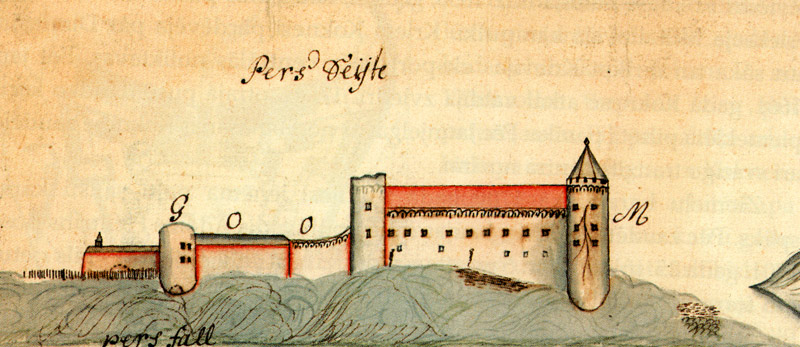 Pers Seijte
G O O M
pers fall